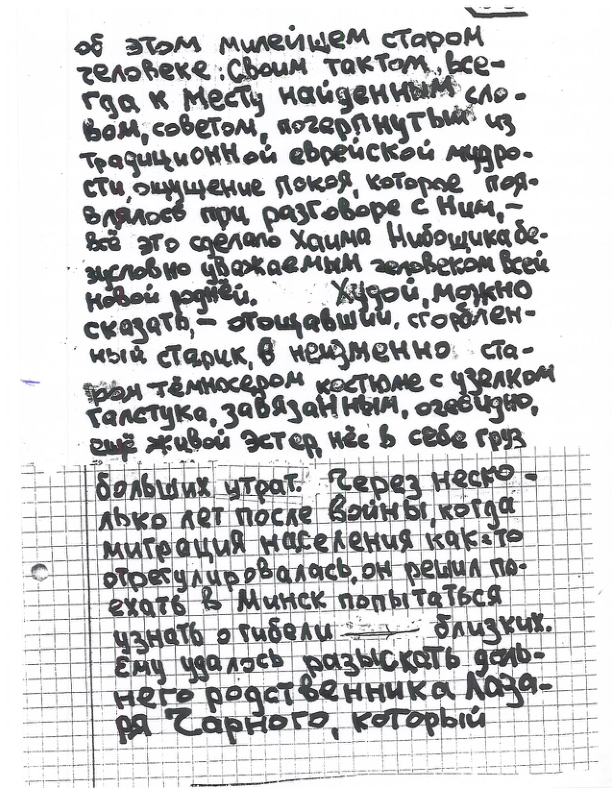 об этом милейшем старом
человеке. Своим тактом, все-
гда к месту найденным сло-
вом, советом, почерпнутым из
традиционной еврейской мудро-
сти, ощущение покоя, которое поя-
влялось при разговоре с ним, –
всё это сделало Хаима Нибощика бе-
зусловно уважаемым человеком всей
новой родней. Худой, можно
сказать, – отощавший, сгорблен-
ный старик, в неизменно ста-
ром тёмносером костюме с узелком
галстука, завязанным, очевидно,
ещё живой Эстер, нёс в себе груз
больших утрат. Через неско-
лько лет после войны, когда
миграция населения как-то
отрегулировалась, он решил по-
ехать в Минск попытаться
узнать о гибели близких.
Ему удалось разыскать даль-
него родственника Лаза-
ря Чарного, который